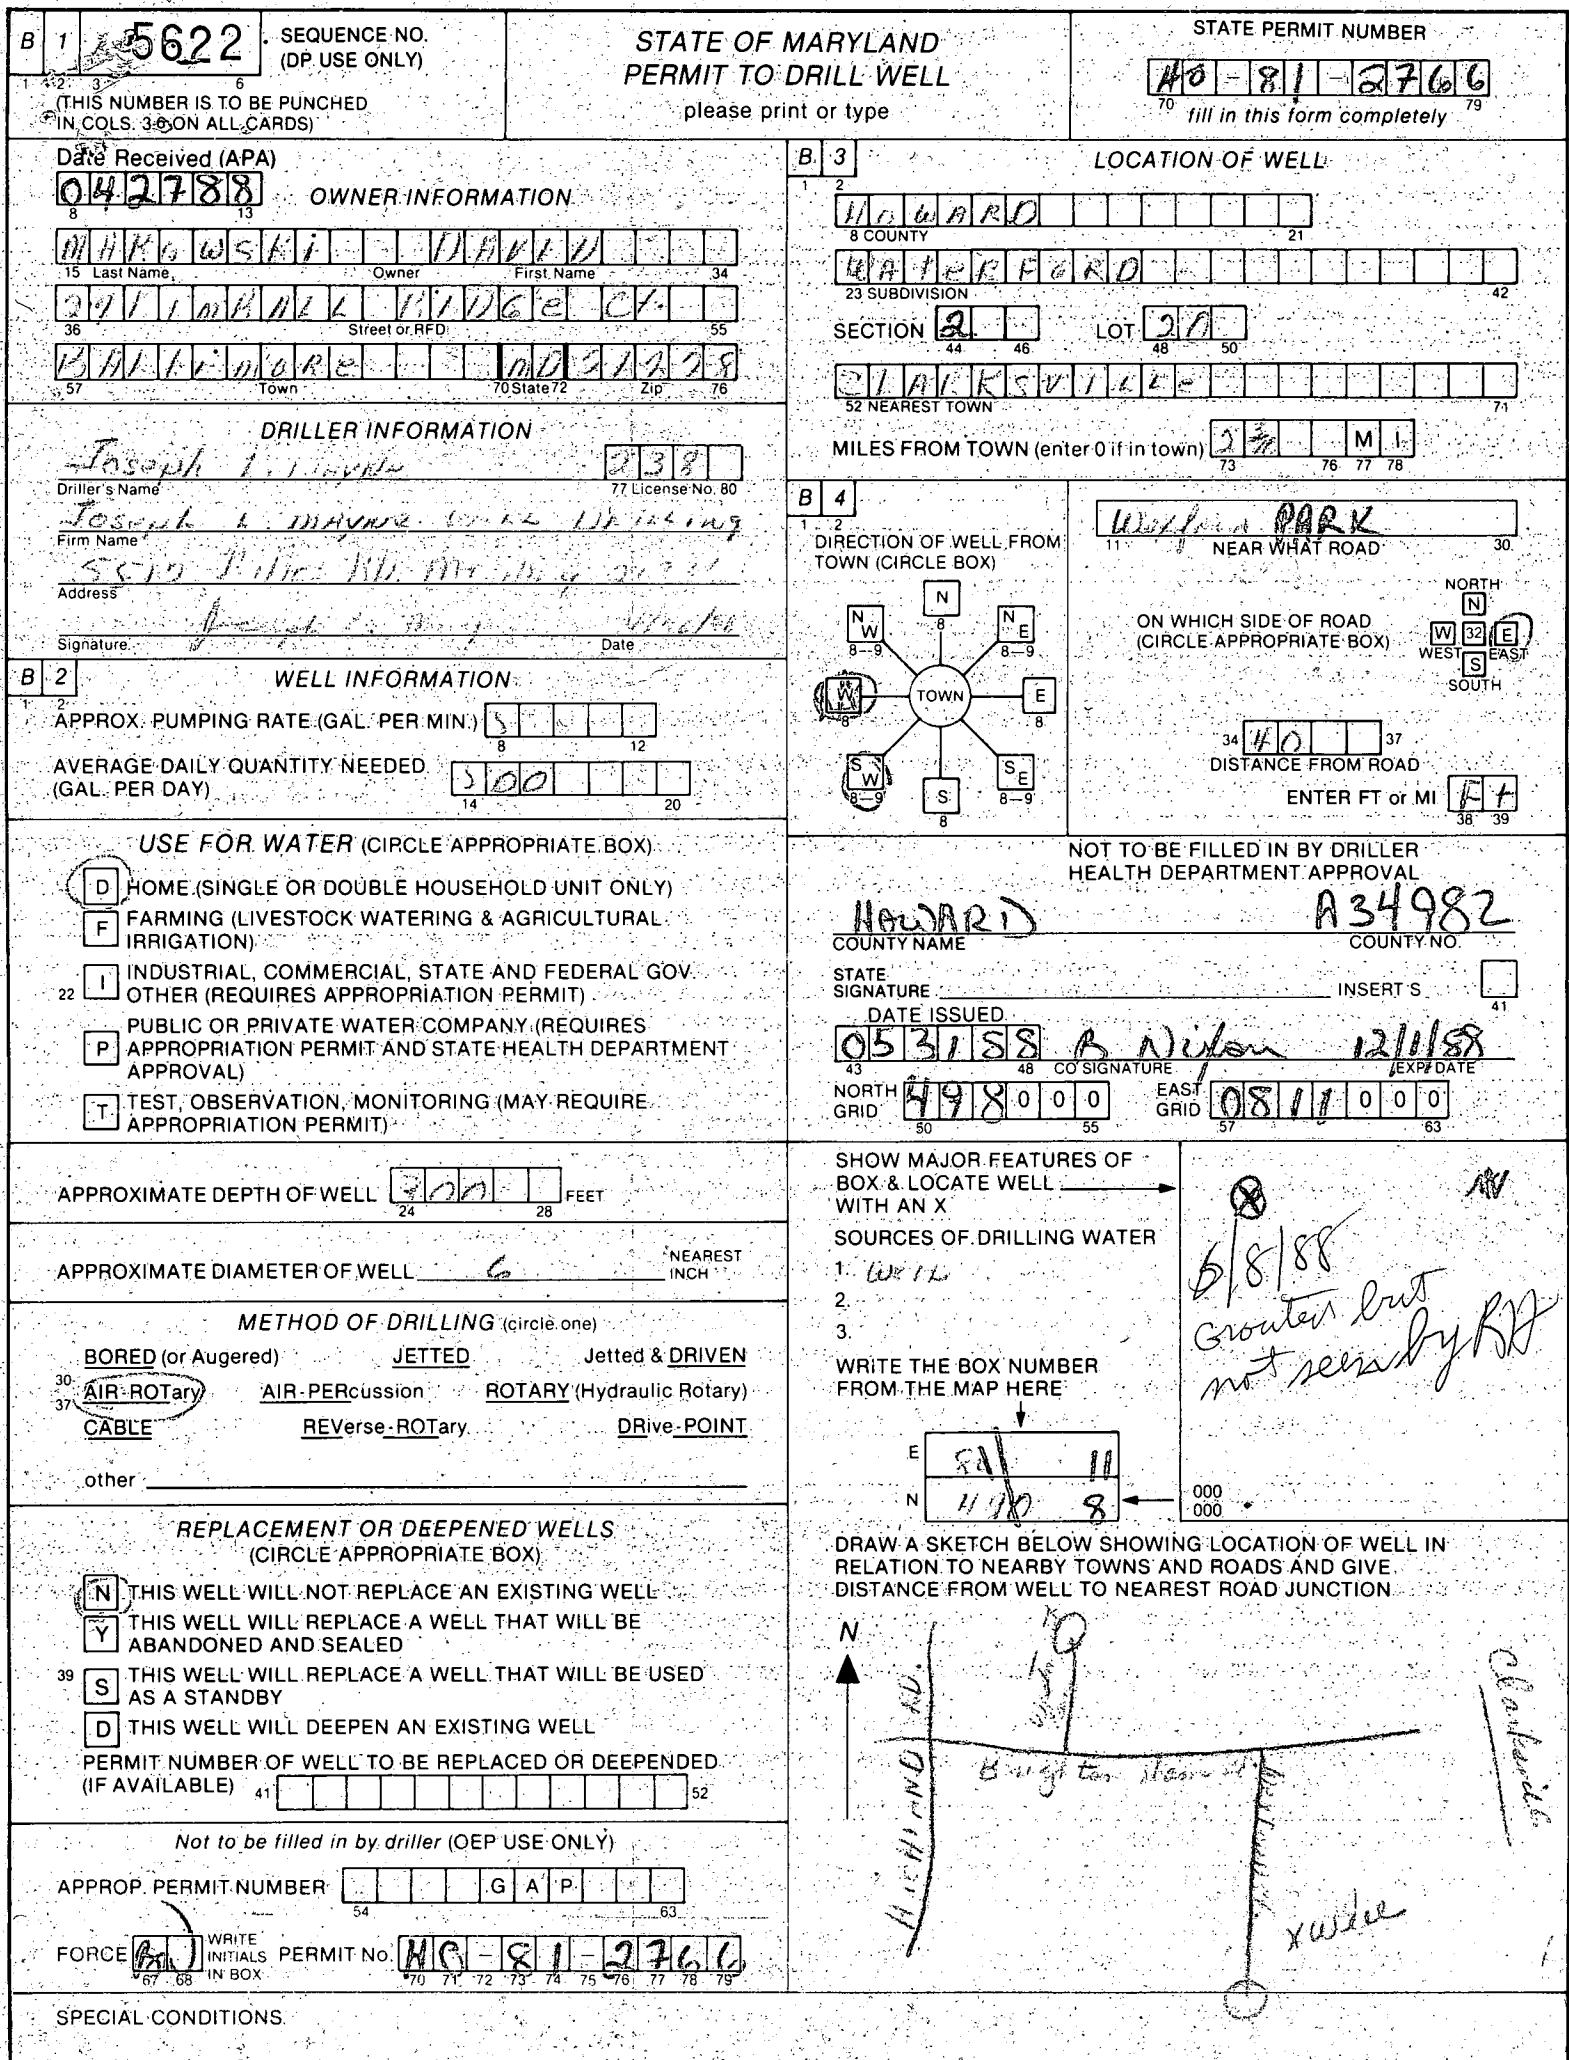 B 1 5622 SEQUENCE NO.
(DP USE ONLY)
1 2 3 6
(THIS NUMBER IS TO BE PUNCHED
IN COLS. 3-6 ON ALL CARDS)
STATE OF MARYLAND
PERMIT TO DRILL WELL
please print or type
STATE PERMIT NUMBER
HO-81-2766
70 79
fill in this form completely
Date Received (APA)
042788
8 13
OWNER INFORMATION
MAKOWSKI DAVID
15 Last Name Owner First Name 34
RIDGE Ct.
36 Street or RFD 55
BALTIMORE MD 21228
57 Town 70 State 72 Zip 76
DRILLER INFORMATION
Joseph L. Mayne 238
Driller's Name 77 License No. 80
Joseph L MAYNE WELL DRILLING
Firm Name
Address
Signature Date
B 2 WELL INFORMATION
1 2
APPROX. PUMPING RATE (GAL. PER MIN.) 5
8 12
AVERAGE DAILY QUANTITY NEEDED
(GAL. PER DAY) 500
14 20
USE FOR WATER (CIRCLE APPROPRIATE BOX)
D HOME (SINGLE OR DOUBLE HOUSEHOLD UNIT ONLY)
F FARMING (LIVESTOCK WATERING & AGRICULTURAL
IRRIGATION)
22 I INDUSTRIAL, COMMERCIAL, STATE AND FEDERAL GOV.
OTHER (REQUIRES APPROPRIATION PERMIT)
P PUBLIC OR PRIVATE WATER COMPANY (REQUIRES
APPROPRIATION PERMIT AND STATE HEALTH DEPARTMENT
APPROVAL)
T TEST, OBSERVATION, MONITORING (MAY REQUIRE
APPROPRIATION PERMIT)
APPROXIMATE DEPTH OF WELL 300 FEET
24 28
APPROXIMATE DIAMETER OF WELL 6 NEAREST
INCH
METHOD OF DRILLING (circle one)
BORED (or Augered) JETTED Jetted & DRIVEN
30 AIR-ROTary AIR-PERcussion ROTARY (Hydraulic Rotary)
37
CABLE REVerse-ROTary DRive-POINT
other
REPLACEMENT OR DEEPENED WELLS
(CIRCLE APPROPRIATE BOX)
N THIS WELL WILL NOT REPLACE AN EXISTING WELL
Y THIS WELL WILL REPLACE A WELL THAT WILL BE
ABANDONED AND SEALED
39 S THIS WELL WILL REPLACE A WELL THAT WILL BE USED
AS A STANDBY
D THIS WELL WILL DEEPEN AN EXISTING WELL
PERMIT NUMBER OF WELL TO BE REPLACED OR DEEPENDED
(IF AVAILABLE) 41 52
Not to be filled in by driller (OEP USE ONLY)
APPROP. PERMIT NUMBER G A P
54 63
FORCE WRITE INITIALS IN BOX PERMIT No. HO-81-2766
67 68 70 71 72 73 74 75 76 77 78 79
SPECIAL CONDITIONS
B 3 LOCATION OF WELL
1 2
HOWARD
8 COUNTY 21
WATERFORD
23 SUBDIVISION 42
SECTION 2 LOT 20
44 46 48 50
CLARKSVILLE
52 NEAREST TOWN 71
MILES FROM TOWN (enter 0 if in town) 2 M I
73 76 77 78
B 4
1 2
DIRECTION OF WELL FROM
TOWN (CIRCLE BOX)
N
8
N W
8-9
N E
8-9
W
8
TOWN
E
8
S W
8-9
S
8
S E
8-9
PARK
11 NEAR WHAT ROAD 30
ON WHICH SIDE OF ROAD
(CIRCLE APPROPRIATE BOX)
NORTH
N
W 32 E
WEST EAST
S
SOUTH
34 40 37
DISTANCE FROM ROAD
ENTER FT or MI Ft
38 39
NOT TO BE FILLED IN BY DRILLER
HEALTH DEPARTMENT APPROVAL
HOWARD A34982
COUNTY NAME COUNTY NO.
STATE
SIGNATURE INSERT S
41
DATE ISSUED
053188 B Nixon 12/1/88
43 48 CO SIGNATURE EXP. DATE
NORTH
GRID 498000
50 55
EAST
GRID 0811000
57 63
SHOW MAJOR FEATURES OF
BOX & LOCATE WELL
WITH AN X
SOURCES OF DRILLING WATER
1. Well
2.
3.
6/8/88
Grouted but
not seen by RH
WRITE THE BOX NUMBER
FROM THE MAP HERE
E 811 11
N 490 8
000
000
DRAW A SKETCH BELOW SHOWING LOCATION OF WELL IN
RELATION TO NEARBY TOWNS AND ROADS AND GIVE
DISTANCE FROM WELL TO NEAREST ROAD JUNCTION
N
HIGHLAND RD.
Brighton Dam
Clarksville
X well